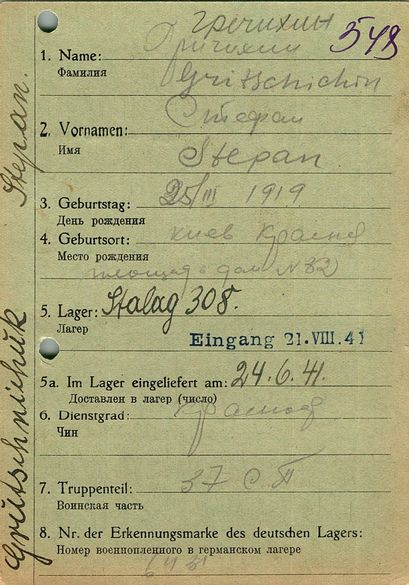 гречихин
548
1. Name: Гричихин
Фамилия
Gritschichin
Стефан
2. Vornamen:
Имя
Stepan
3. Geburtstag: 25/III 1919
День рождения
4. Geburtsort: Киев
Место рождения
площадь дом N 82
5. Lager: Stalag 308.
Лагерь
Eingang 21. VIII. 41
5a. Im Lager eingeliefert am: 24.6.41.
Доставлен в лагер (число)
6. Dienstgrad:
Чин
7. Truppenteil: 37 С.П
Воинская часть
8. Nr. der Erkennungsmarke des deutschen Lagers:
Номер военнопленного в германском лагере
Grütschnichuk Stepan.